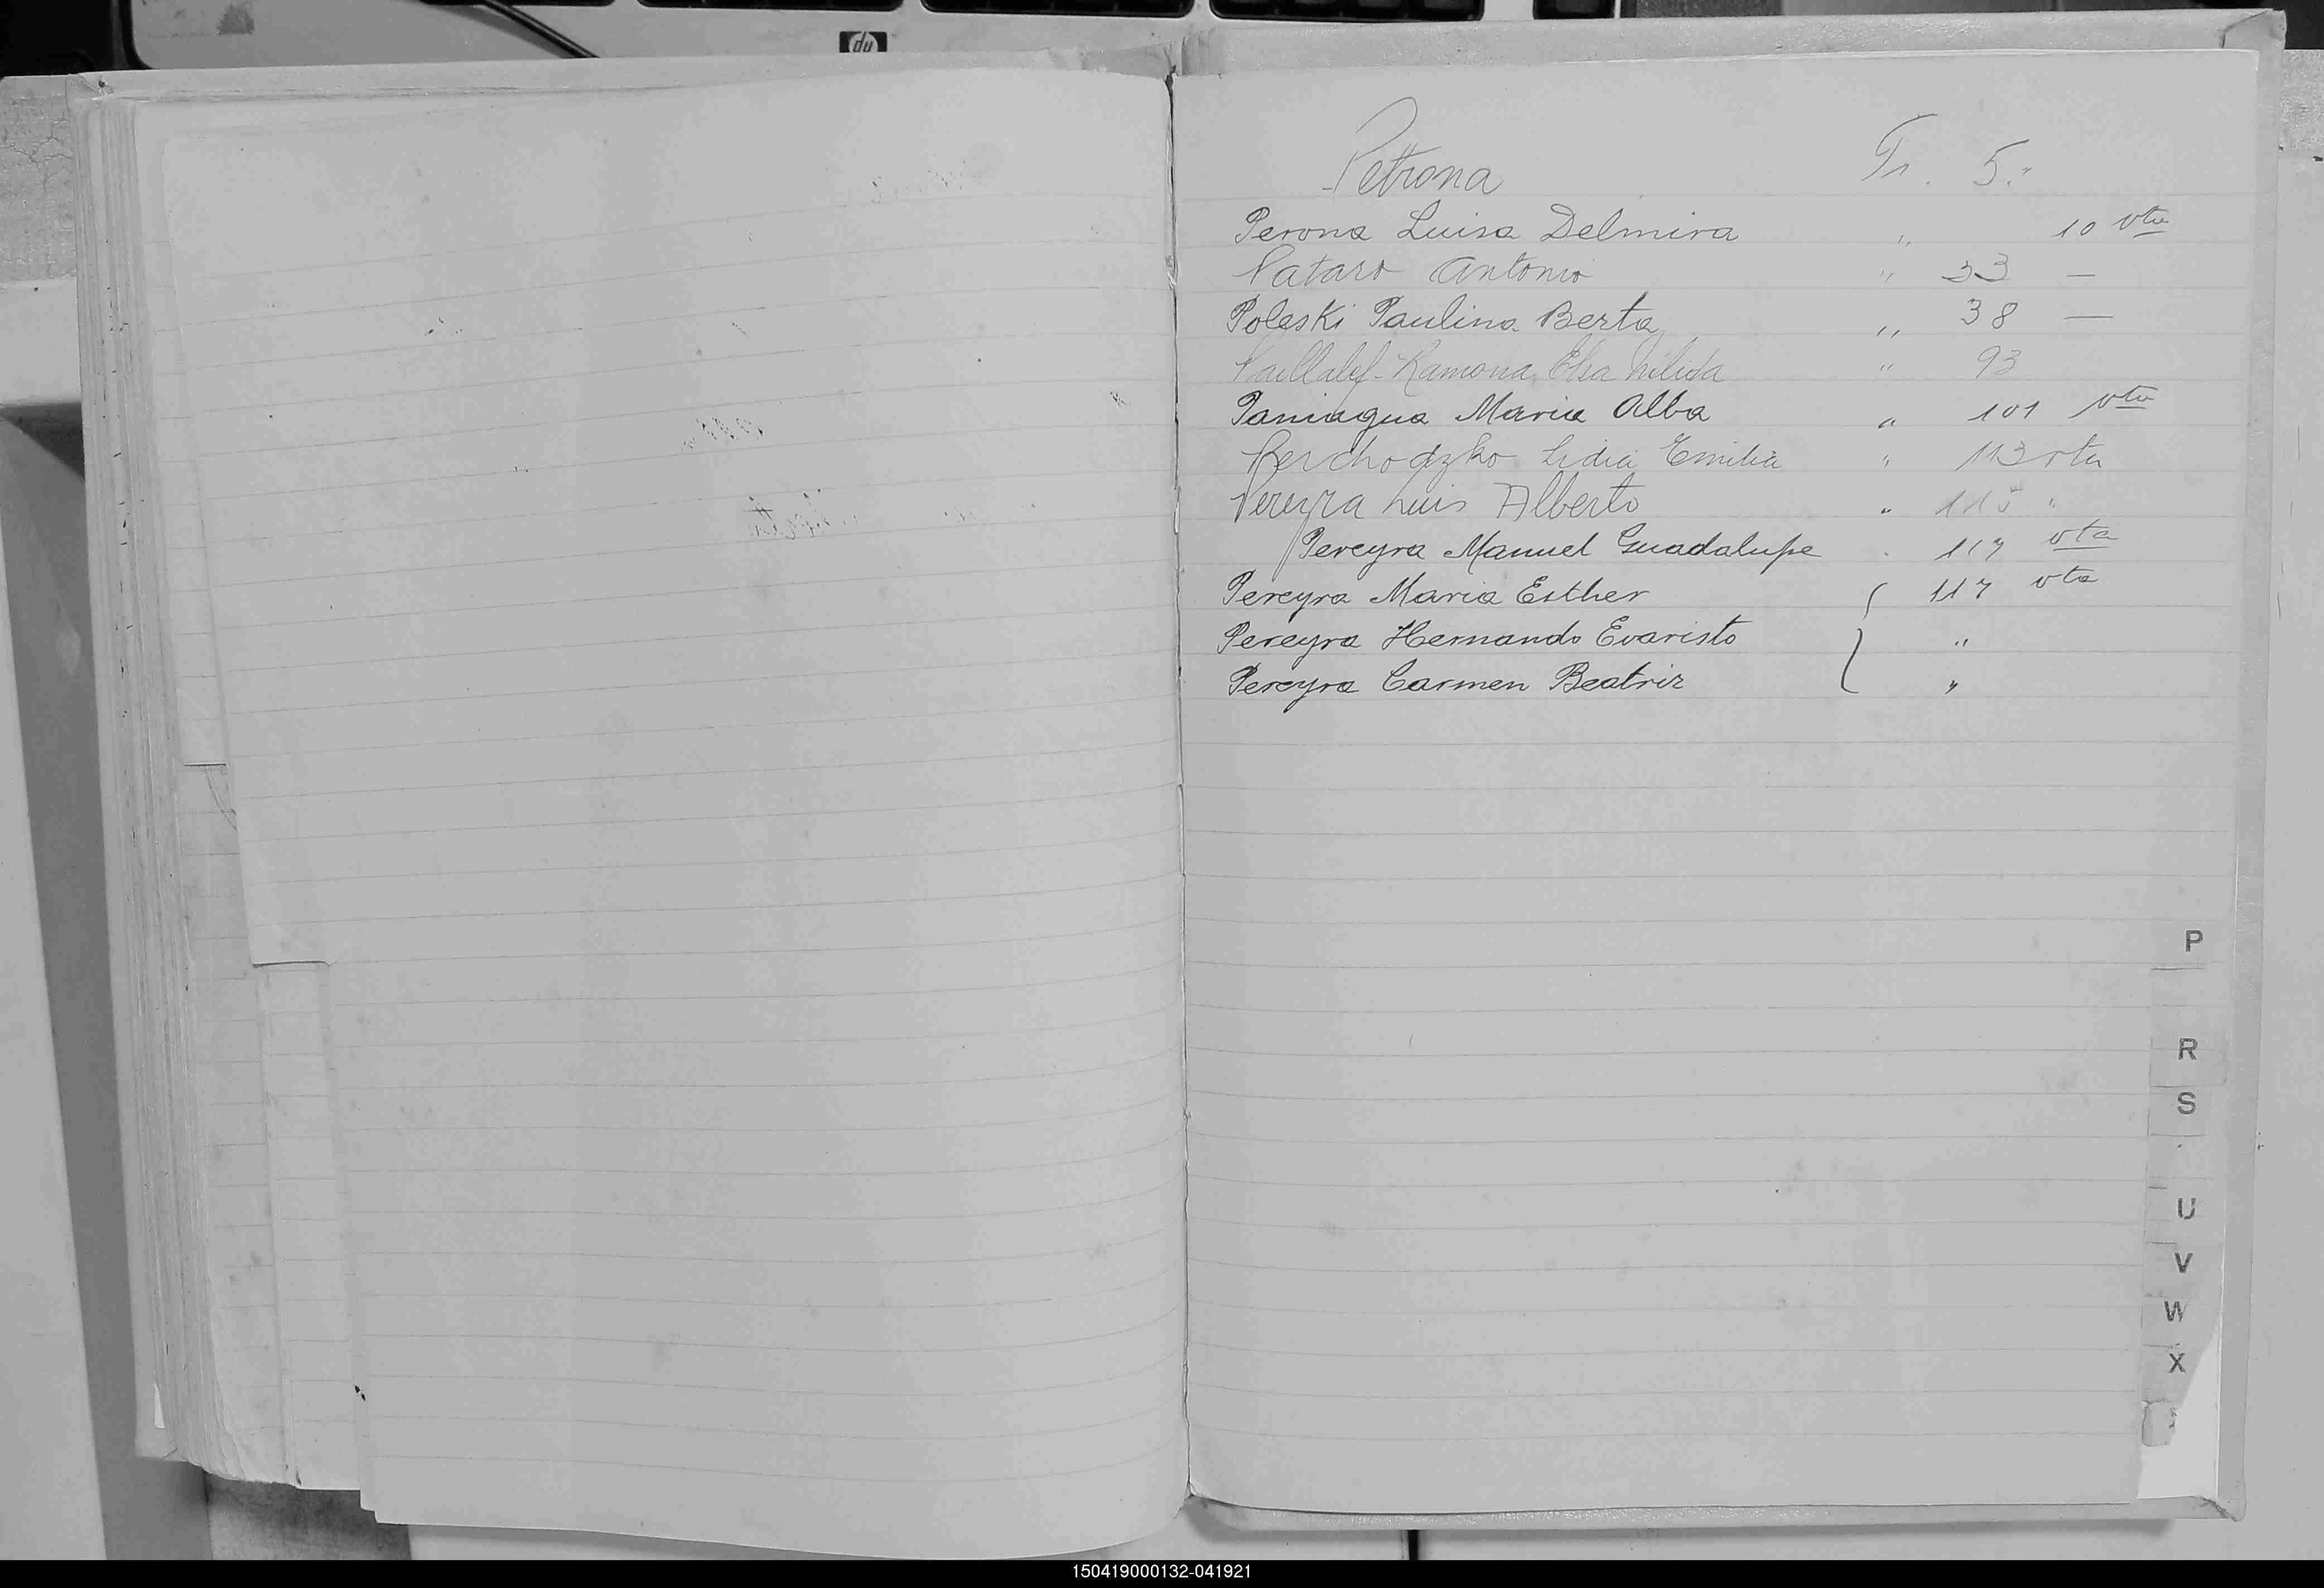 hp
Petrona Fs. 5.
Perona Luisa Delmira " 10 vta
Pataro Antonio " 33 —
Poleski Paulina Berta " 38 —
Paillalef - Ramona Elsa Nélida " 93
Paniagua Maria Alba " 101 vta
Perchodzko Lidia Emilia " 113 vta
Pereyra Luis Alberto " 115 "
Pereyra Manuel Guadalupe 117 vta
Pereyra Maria Esther 117 vta
Pereyra Hernando Evaristo "
Pereyra Carmen Beatriz "
P
R
S
U
V
W
X
150419000132-041921